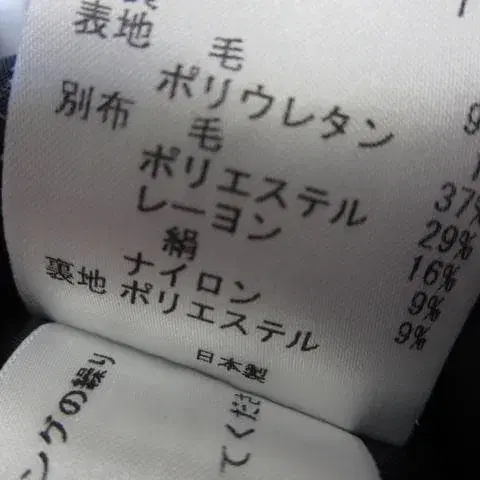 表地 毛 9
ポリウレタン 1
別布 毛 37%
ポリエステル 29%
レーヨン 16%
絹 9%
ナイロン 9%
裏地 ポリエステル
日本製
ングの繰り
てくださ